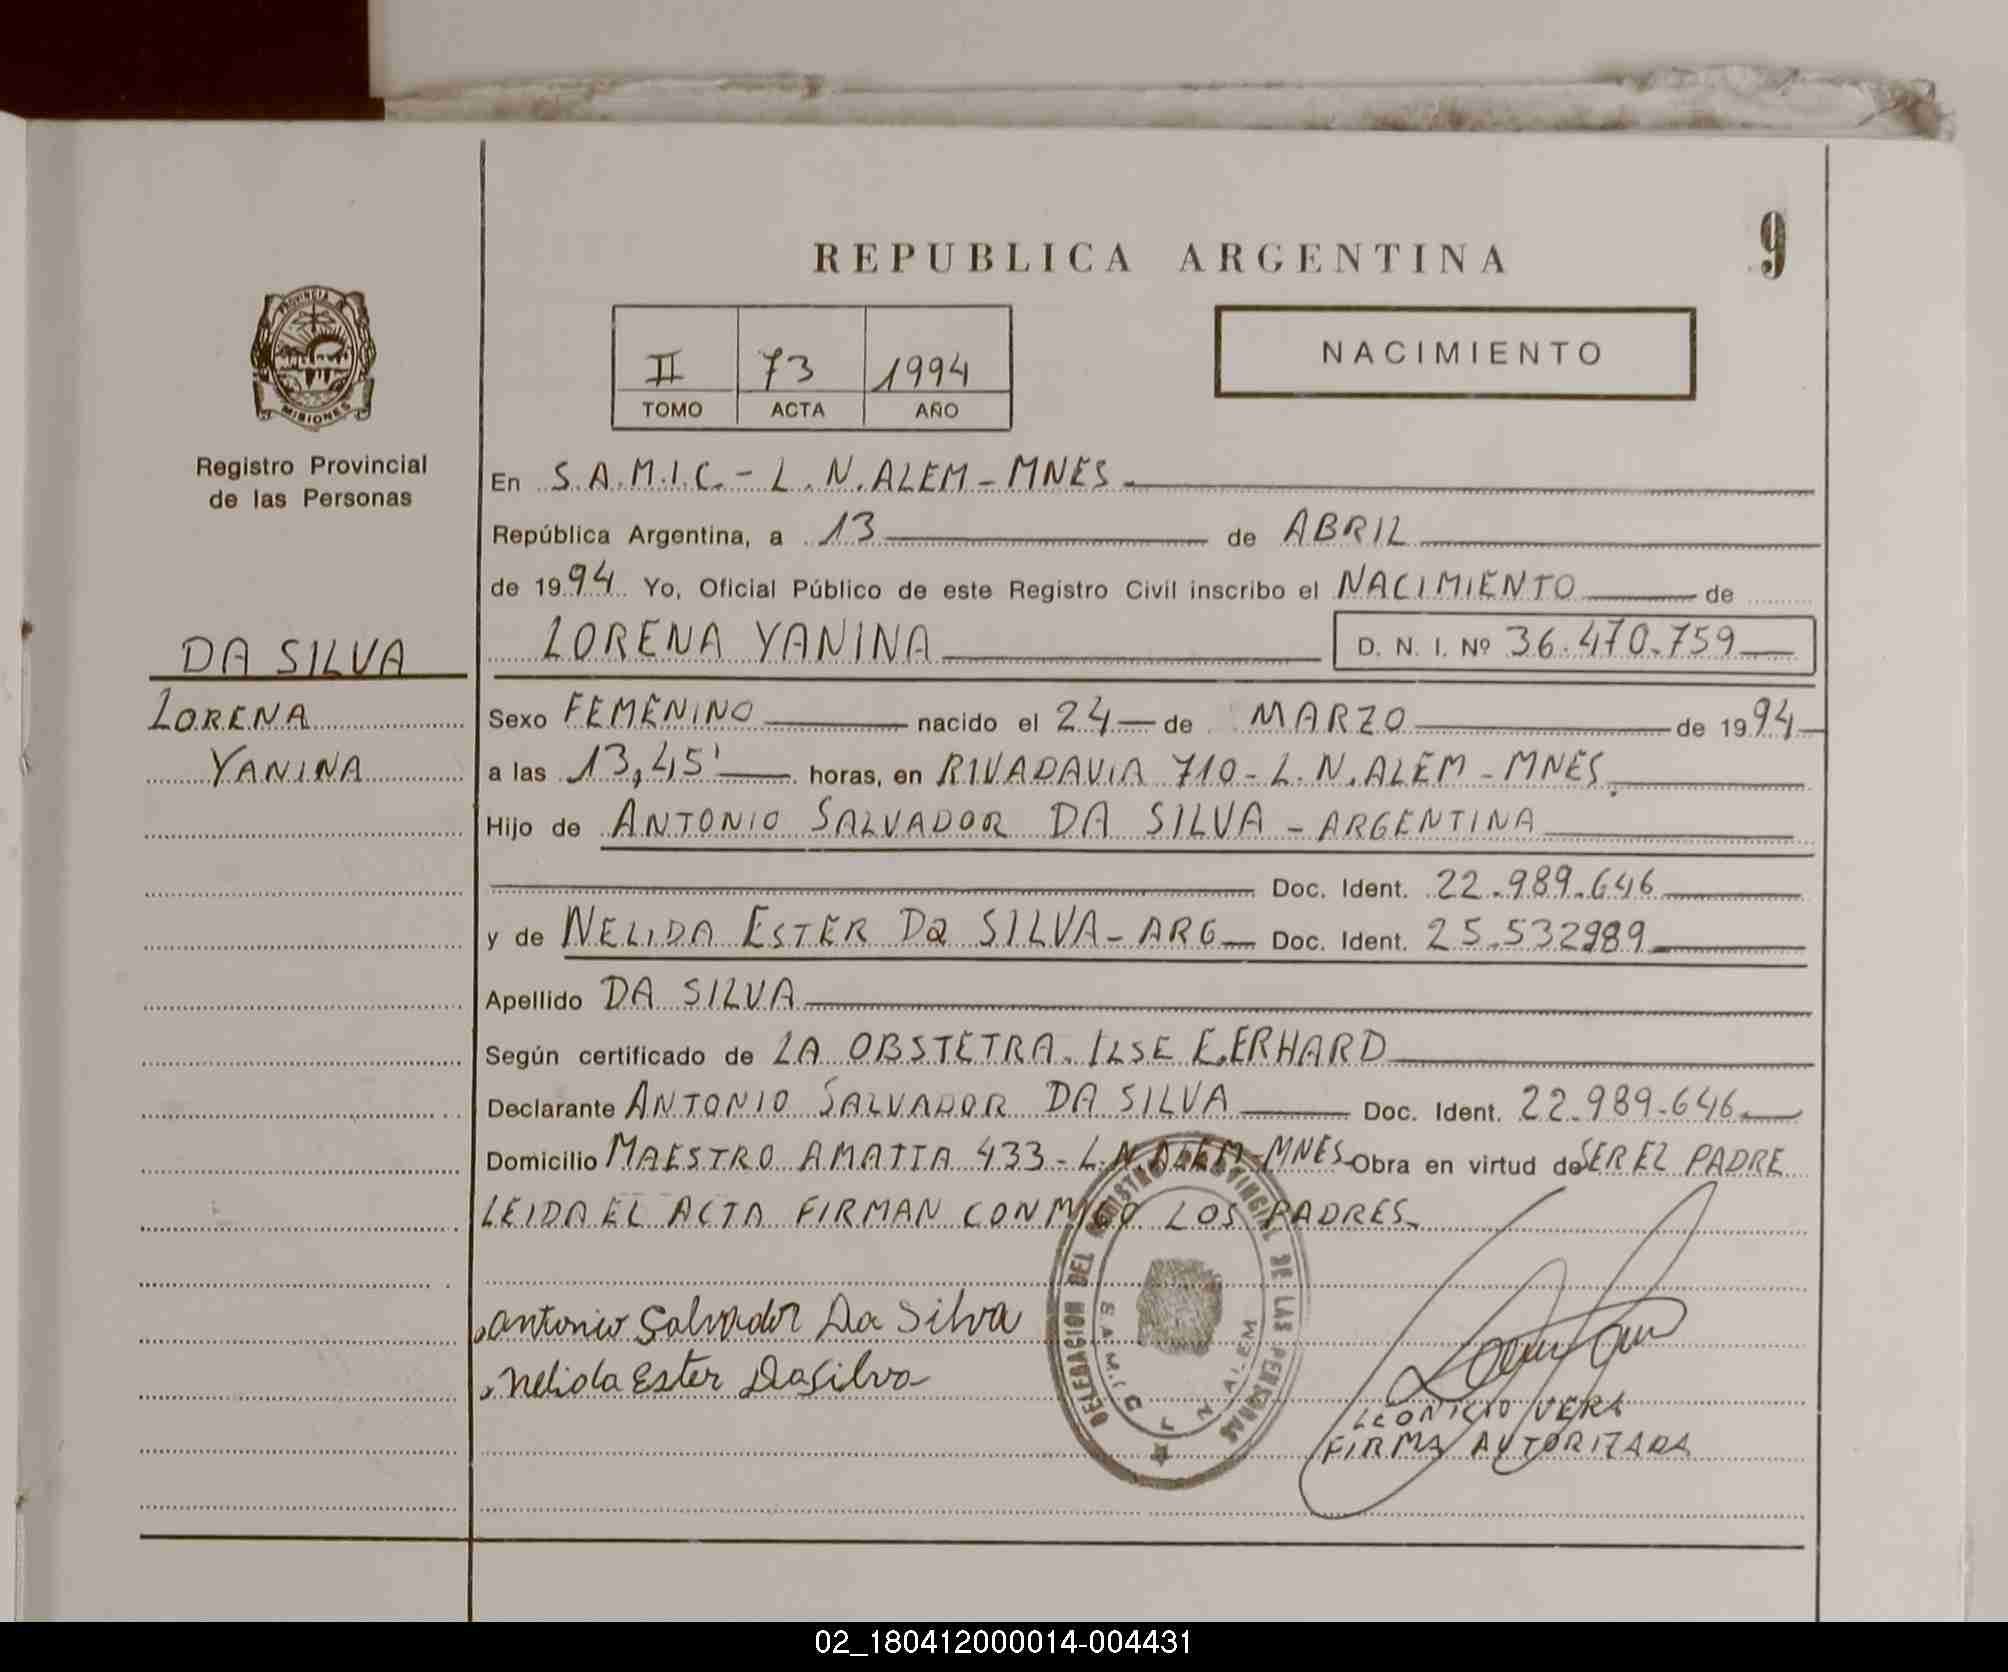 REPUBLICA ARGENTINA
9
PROVINCIA DE
MISIONES
Registro Provincial
de las Personas
II 73 1994
TOMO ACTA AÑO
NACIMIENTO
En S.A.M.I.C. - L.N. ALEM - MNES
República Argentina, a 13 de ABRIL
de 1994 Yo, Oficial Público de este Registro Civil inscribo el NACIMIENTO de
LORENA YANINA D. N. I. Nº 36.470.759
DA SILVA
LORENA
YANINA
Sexo FEMENINO nacido el 24 de MARZO de 1994
a las 13,45' horas, en RIVADAVIA 710 - L.N. ALEM - MNES.
Hijo de ANTONIO SALVADOR DA SILVA - ARGENTINA
Doc. Ident. 22.989.646
y de NELIDA ESTER Da SILVA - ARG Doc. Ident. 25.532989
Apellido DA SILVA
Según certificado de LA OBSTETRA. ILSE E. ERHARD
Declarante ANTONIO SALVADOR DA SILVA Doc. Ident. 22.989.646
Domicilio MAESTRO AMATTA 433 - L.N. ALEM - MNES Obra en virtud de SER EL PADRE
LEIDA EL ACTA FIRMAN CONMIGO LOS PADRES.
Antonio Salvador Da Silva
Nelida Ester Da Silva
DELEGACION DEL REGISTRO PROVINCIAL DE LAS PERSONAS
S.A.M.I.C. L. N. ALEM
LEONICIO VERA
FIRMA AUTORIZADA
02_180412000014-004431